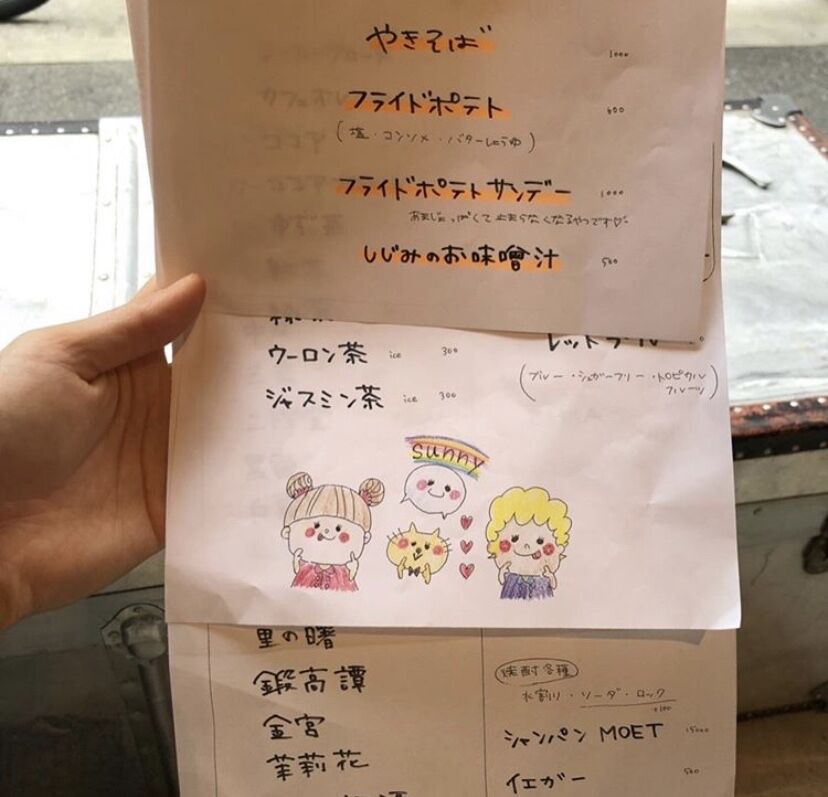 やきそば 1000
フライドポテト 600
(塩・コンソメ・バターしょうゆ)
フライドポテトサンデー 1000
あまじょっぱくて止まらなくなるやつです♡
しじみのお味噌汁 500
ウーロン茶 ice 300
ジャスミン茶 ice 300
レッドブル
(ブルー・シュガーフリー・トロピカル
フルーツ)
sunny
里の曙
鍛高譚
金宮
茉莉花
焼酎各種
水割り・ソーダ・ロック
+100
シャンパン MOET 15000
イエガー 500